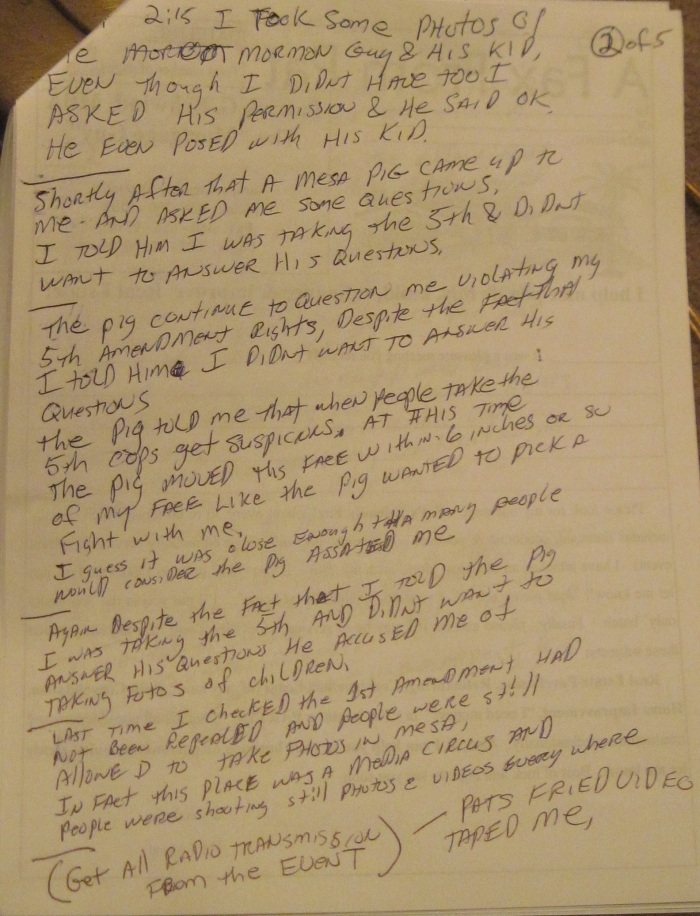 2:15 I Took Some Photos of
② of 5
he MORMON Guy & His KID,
EVEN though I DIDNt HAVE too I
ASKED His PERMISSION & He SAID OK.
He EVEN POSED with His KID.
Shortly AFTER that A MESA PIG CAME up to
ME AND ASKED ME SOME QUESTIONS,
I TOLD HIM I WAS TAKING the 5th & DIDNT
WANT TO ANSWER HIS QUESTIONS,
The pig CONTINUE to QUESTION me VIOLATING my
5th AMENDMENT RIGHTS, DESPITE the FACT THAt
I tOLD HIM I DIDNt WANT TO ANSWER HIS
QUESTIONS
the Pig tOLD me that when PEOPLE TAKE the
5th COPS get SUSPICIOUS. AT tHIS TIME
The pig MOVED his FACE WithIN 6 INCHES OR SO
of my FACE LIKE the Pig WANTED TO PICK A
FIGHT with me,
I guess it WAS close ENOUGH thA MANY people
WOULD CONSIDER the Pig ASSATED me
AgAIN Despite the FACt thet I tOLD the Pig
I WAS TAKING the 5th AND DIDNT WANT to
ANSWER HIS QUESTIONS He ACCUSED ME OF
TAKING FOTOS of CHILDREN,
LAST TIME I CHECKED the 1st AMENDMENT HAD
NOt BEEN REPEALED AND PEOPLE WERE still
AllOWED to TAKE PHOTOS IN MESA,
IN FACt this PLACE WAS A MEDIA CIRCUS AND
People WERE shooting still PHOTOS & VIDEOS EVERY where
(Get All RADIO TRANSMISSION
FROM the EVENT)
— PATS FRIED VIDEO
TAPED ME,